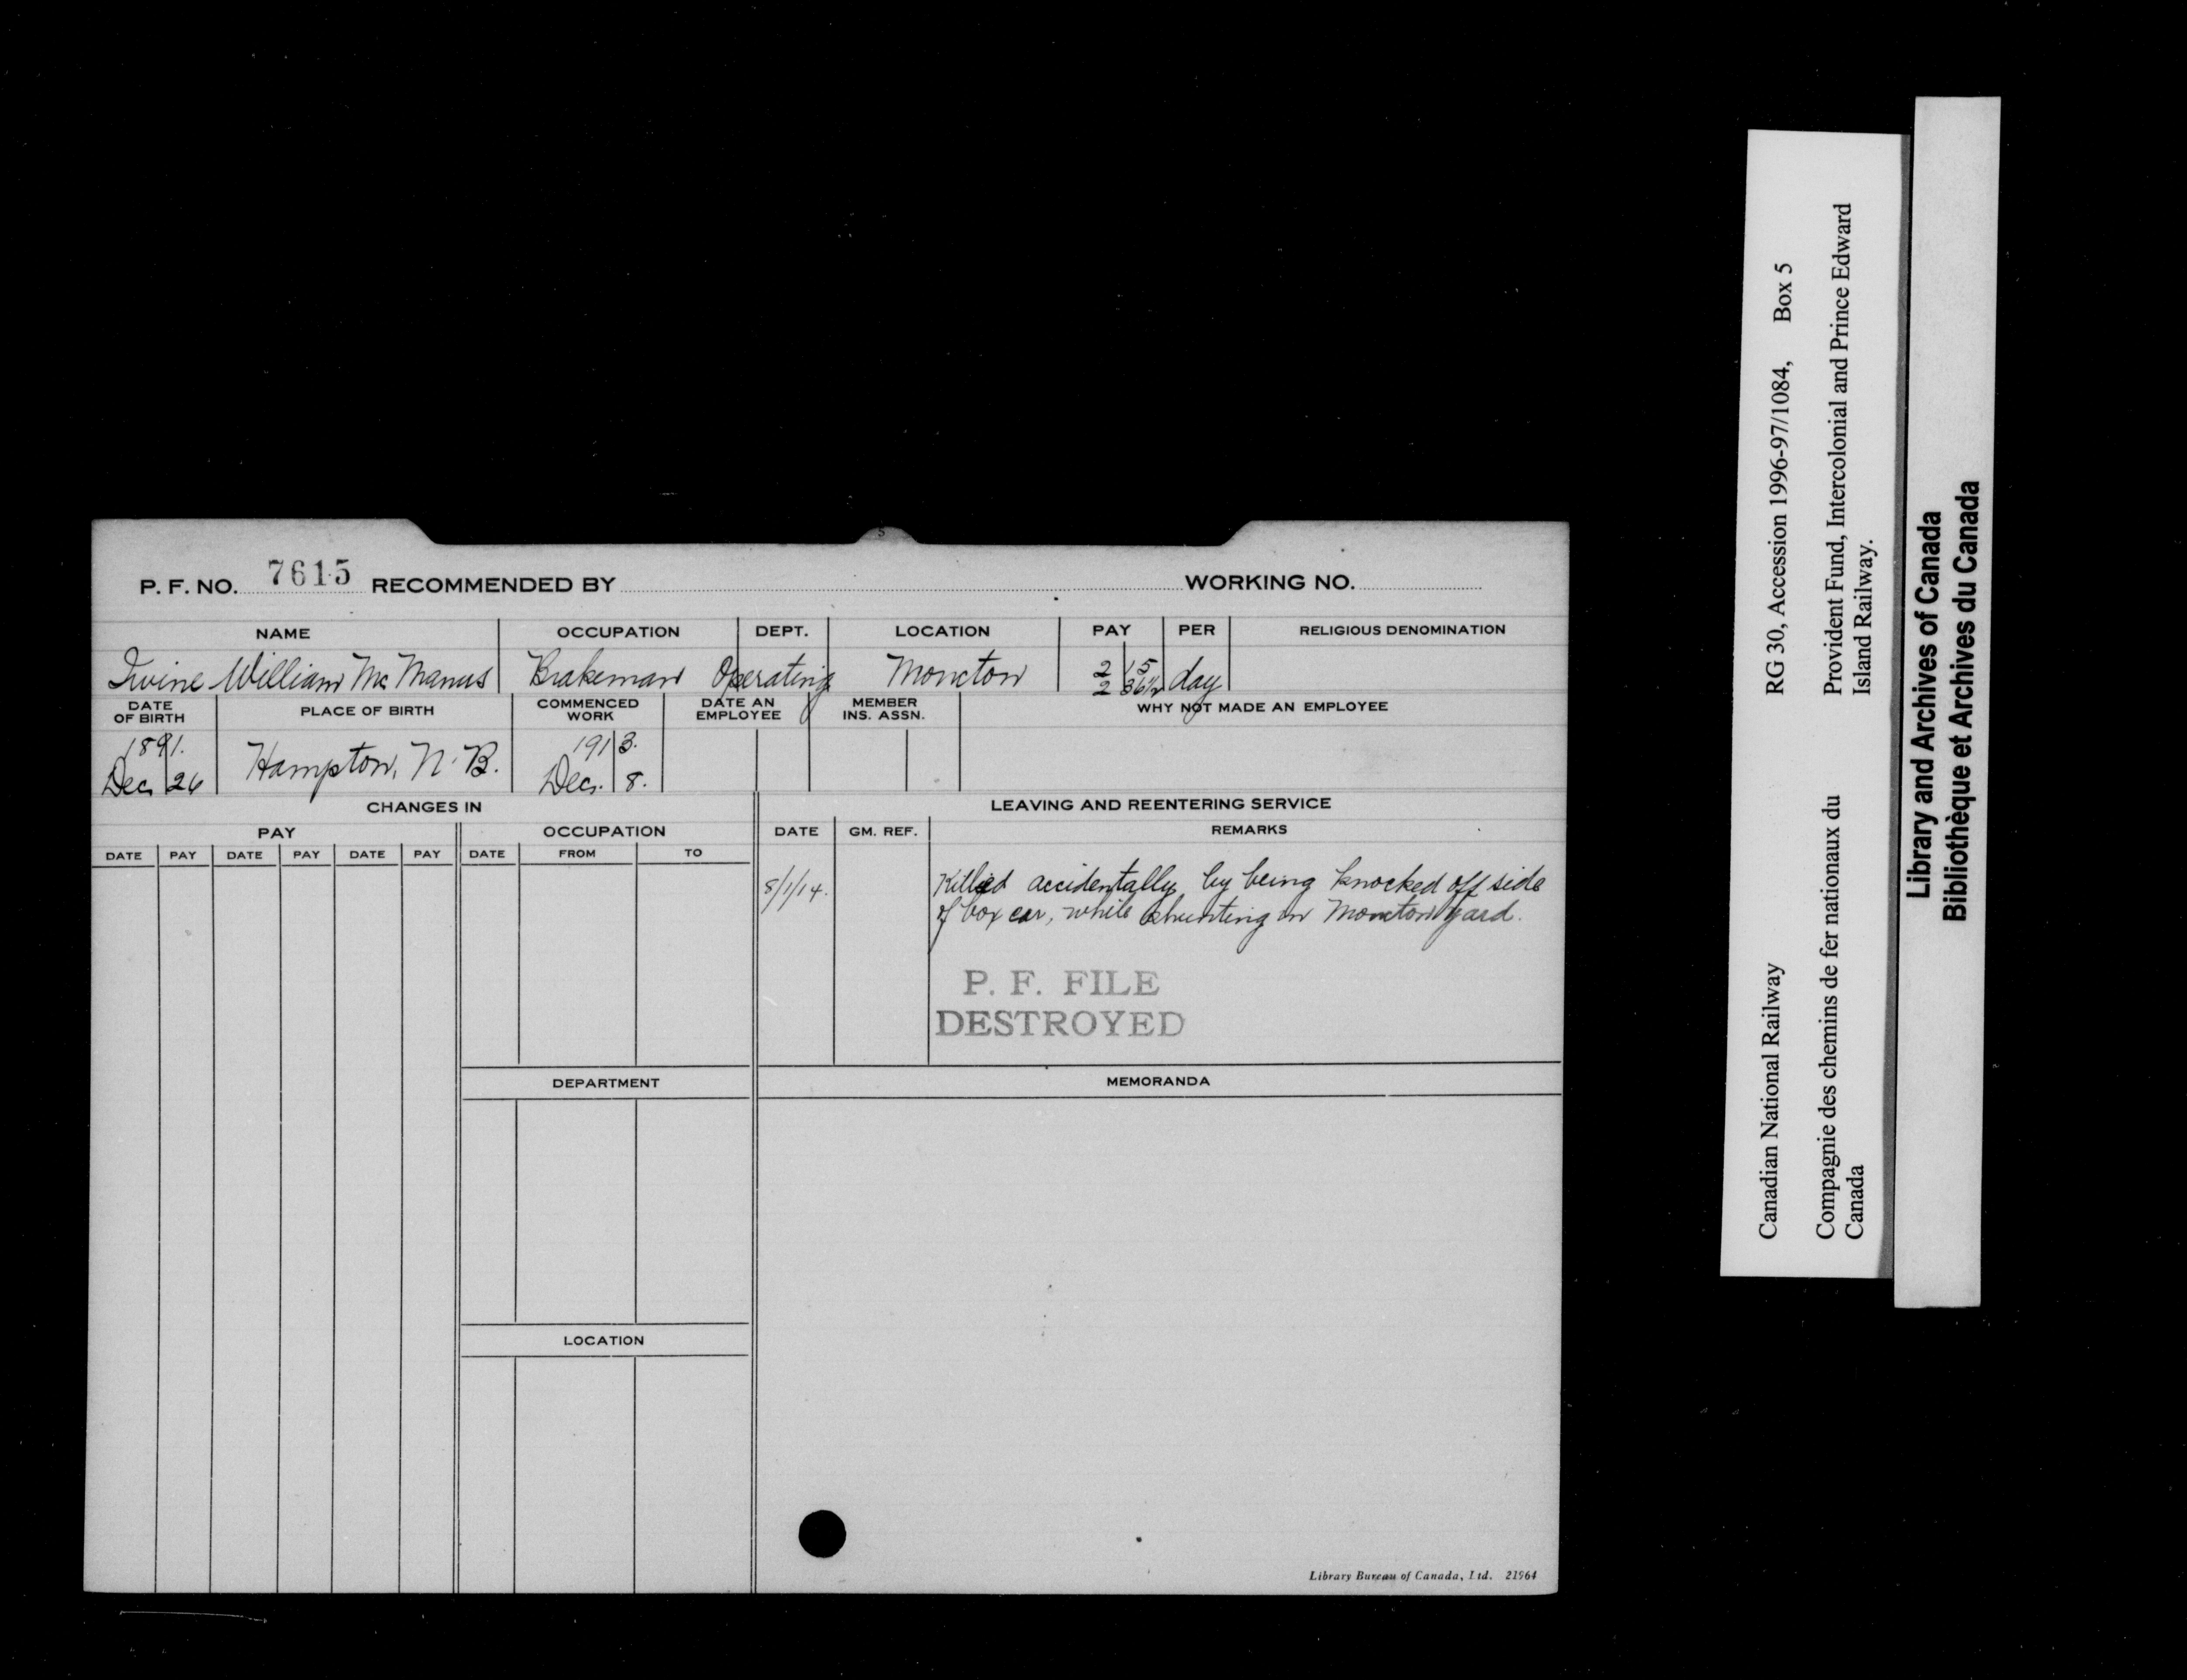 5
P. F. NO. 7615 RECOMMENDED BY WORKING NO.
NAME OCCUPATION DEPT. LOCATION PAY PER RELIGIOUS DENOMINATION
Irvine William Mc Manus Brakeman Operating Moncton 2 15
2 36½ day
DATE OF BIRTH PLACE OF BIRTH COMMENCED WORK DATE AN EMPLOYEE MEMBER INS. ASSN. WHY NOT MADE AN EMPLOYEE
1891. 1913.
Dec 26 Hampton, N. B. Dec. 8.
CHANGES IN LEAVING AND REENTERING SERVICE
PAY OCCUPATION DATE GM. REF. REMARKS
DATE PAY DATE PAY DATE PAY DATE FROM TO
8/1/14. Killed accidentally by being knocked off side
of box car, while shunting in Moncton yard.
P. F. FILE
DESTROYED
DEPARTMENT MEMORANDA
LOCATION
Library Bureau of Canada, Ltd. 21964
Canadian National Railway RG 30, Accession 1996-97/1084, Box 5
Compagnie des chemins de fer nationaux du
Canada
Provident Fund, Intercolonial and Prince Edward
Island Railway.
Library and Archives of Canada
Bibliothèque et Archives du Canada